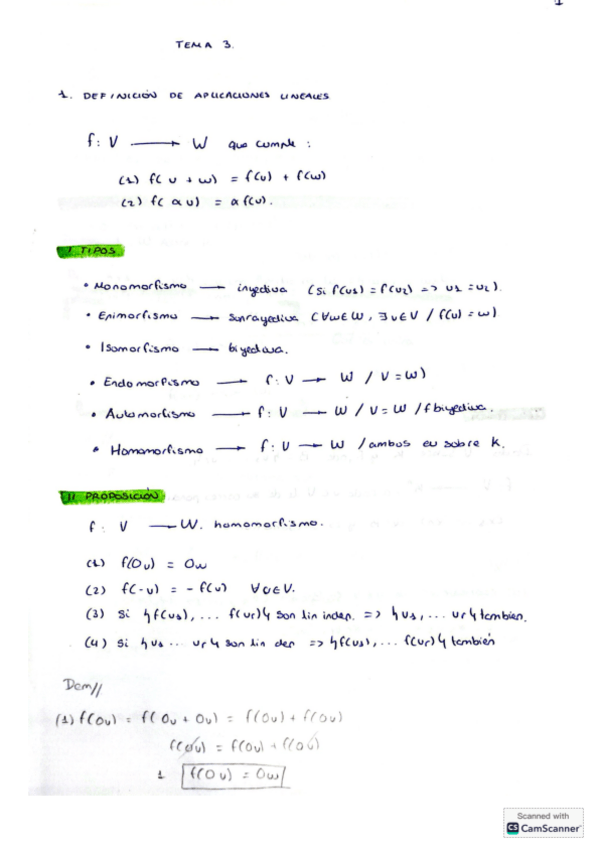 1
TEMA 3.
1. DEFINICIÓN DE APLICACIONES LINEALES
f: V ⟶ W que cumple :
(1) f( u + w) = f(u) + f(w)
(2) f( α u) = α f(u).
I TIPOS
• Monomorfismo ⟶ inyectiva (Si f(u1) = f(u2) => u1 = u2).
• Epimorfismo ⟶ sobrayectiva (∀w∈W, ∃u∈V / f(u) = w)
• Isomorfismo ⟶ biyectiva.
• Endomorfismo ⟶ f: V ⟶ W / V = W)
• Automorfismo ⟶ f: V ⟶ W / V = W / f biyectiva.
• Homomorfismo ⟶ f: V ⟶ W / ambos ev sobre K.
II PROPOSICIÓN
f: V ⟶ W. homomorfismo.
(1) f(0v) = 0w
(2) f(-u) = - f(u) ∀u∈V.
(3) Si {f(u1), ... f(ur)} son lin indep. => {u1, ... ur} tambien.
(4) Si {u1 ... ur} son lin dep => {f(u1), ... f(ur)} también
Dem//
(1) f(0v) = f( 0v + 0v) = f(0v) + f(0v)
f(0v) = f(0v) + f(0v)
1 f(0v) = 0w
Scanned with
CS CamScanner